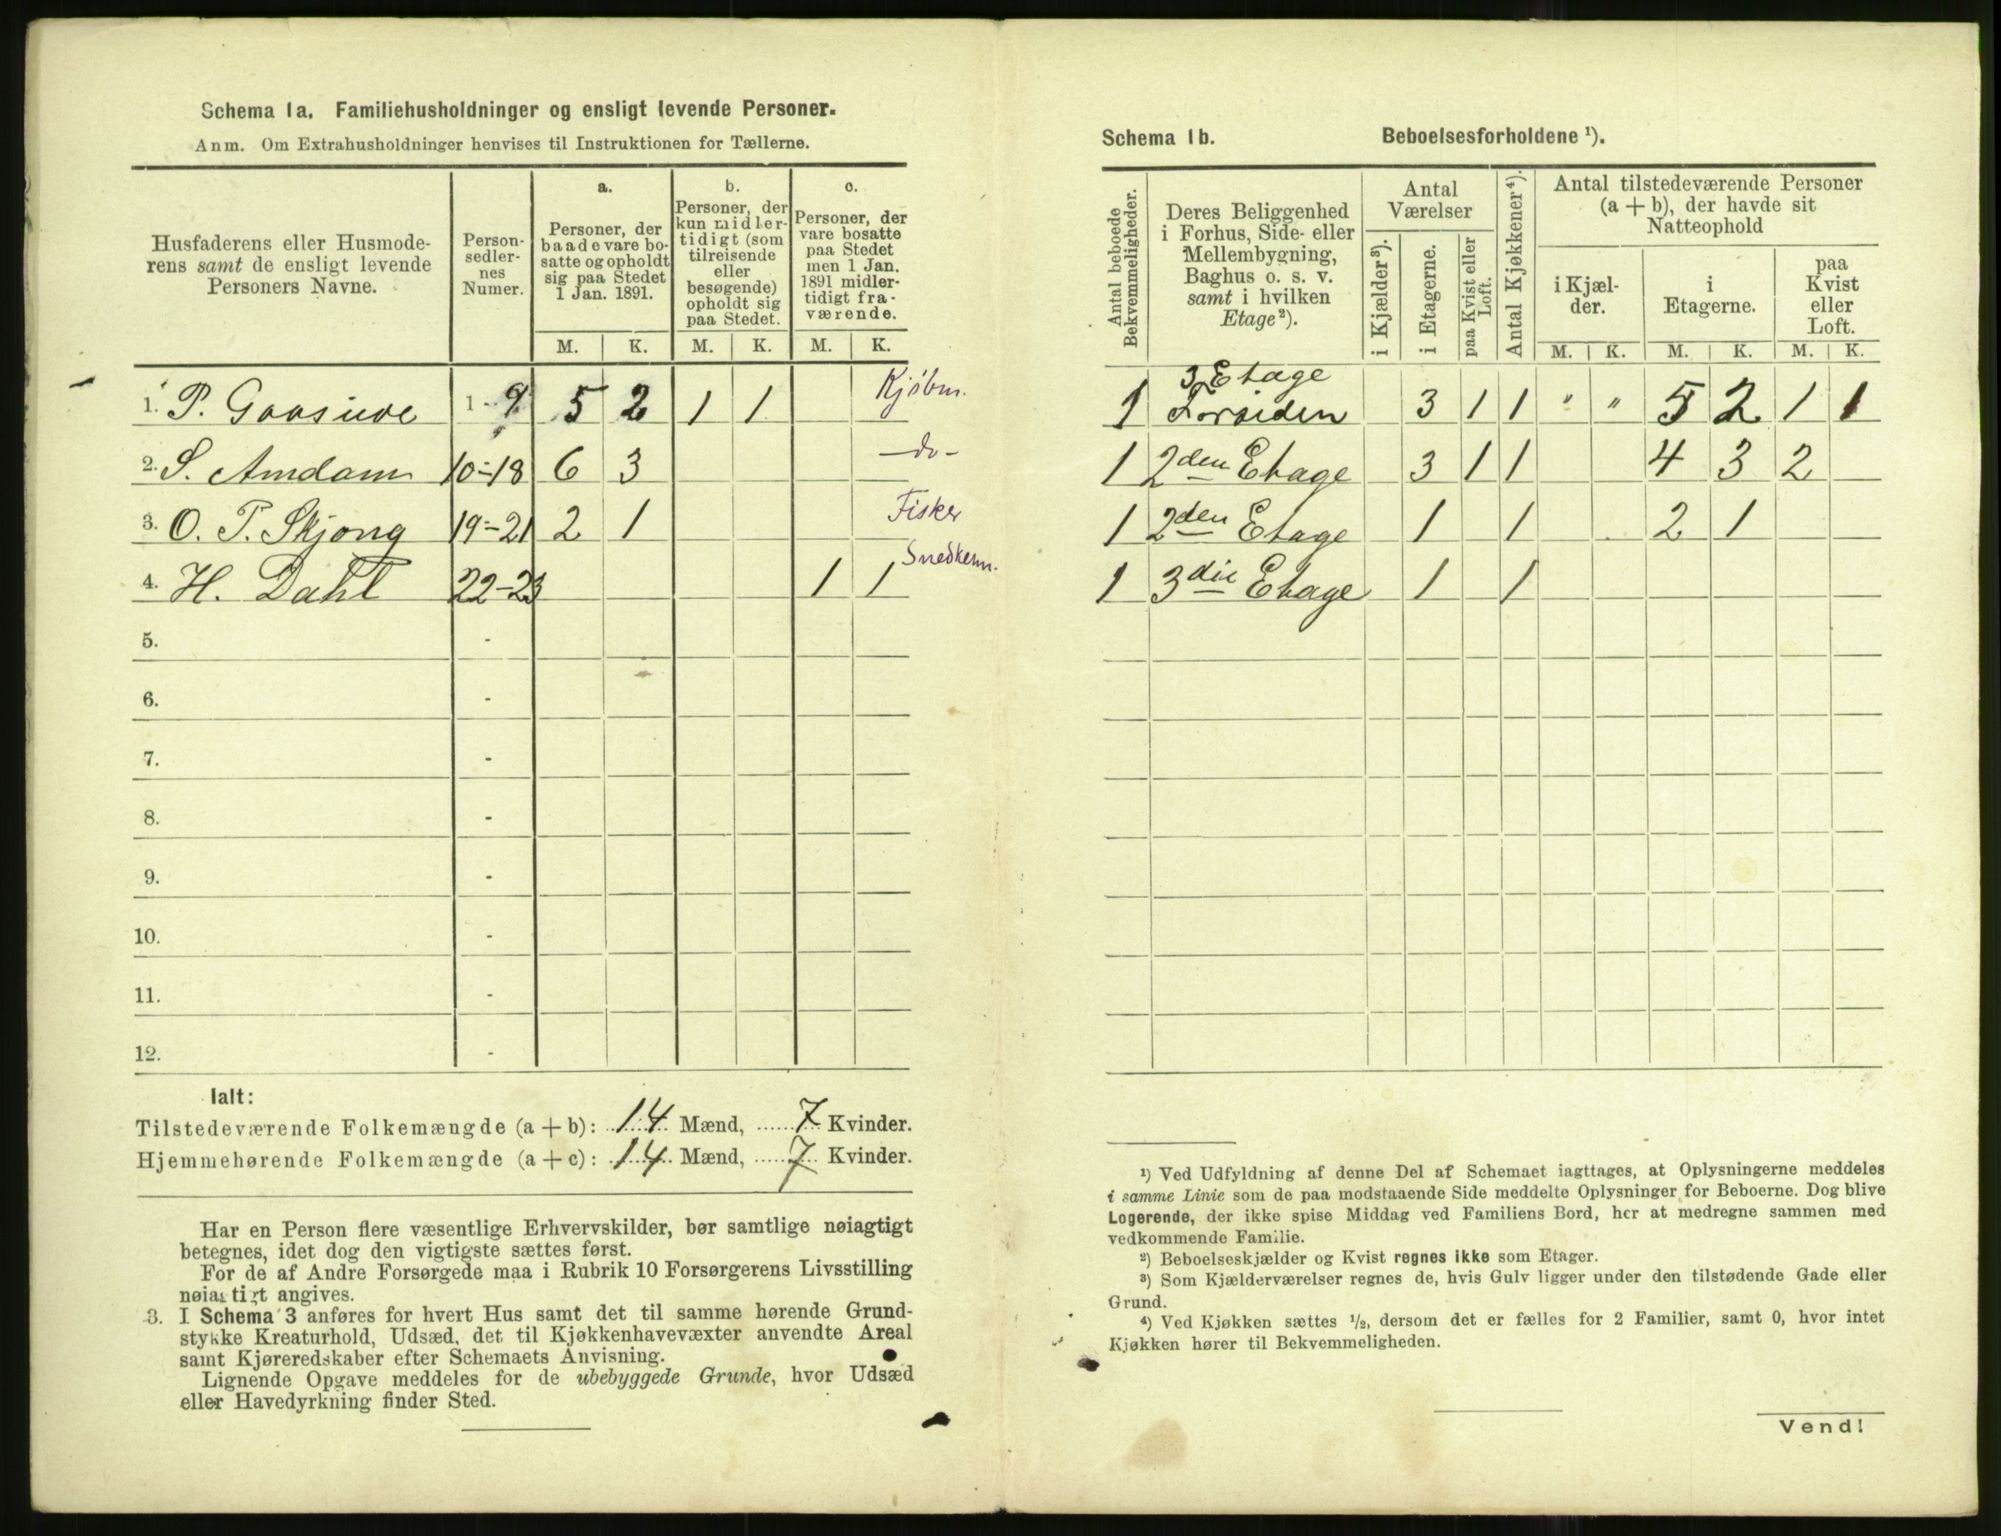 Schema 1a. Familiehusholdninger og ensligt levende Personer.
Anm. Om Extrahusholdninger henvises til Instruktionen for Tællerne.
Husfaderens eller Husmode-
rens samt de ensligt levende
Personers Navne.
Person-
sedler-
nes
Numer.
a.
Personer, der
baade vare bo-
satte og opholdt
sig paa Stedet
1 Jan. 1891.
b.
Personer, der
kun midler-
tidigt (som
tilreisende
eller
besøgende)
opholdt sig
paa Stedet.
c.
Personer, der
vare bosatte
paa Stedet
men 1 Jan.
1891 midler-
tidigt fra-
værende.
M. K. M. K. M. K.
1. P. Gaasuve 1 - 9 5 2 1 1 Kjøbm.
2. S. Amdam 10-18 6 3 -do-
3. O. P. Skjong 19-21 2 1 Fisker
4. H. Dahl 22-23 1 1 Snedkerm.
5. -
6. -
7. -
8. -
9. -
10. -
11. -
12. -
Ialt:
Tilstedeværende Folkemængde (a + b): 14 Mænd, 7 Kvinder.
Hjemmehørende Folkemængde (a + c): 14 Mænd, 7 Kvinder.
Har en Person flere væsentlige Erhvervskilder, bør samtlige nøiagtigt
betegnes, idet dog den vigtigste sættes først.
For de af Andre Forsørgede maa i Rubrik 10 Forsørgerens Livsstilling
nøiagtigt angives.
3. I Schema 3 anføres for hvert Hus samt det til samme hørende Grund-
stykke Kreaturhold, Udsæd, det til Kjøkkenhavevæxter anvendte Areal
samt Kjøreredskaber efter Schemaets Anvisning.
Lignende Opgave meddeles for de ubebyggede Grunde, hvor Udsæd
eller Havedyrkning finder Sted.
Schema 1b. Beboelsesforholdene ¹).
Antal beboede
Bekvemmeligheder.
Deres Beliggenhed
i Forhus, Side- eller
Mellembygning,
Baghus o. s. v.
samt i hvilken
Etage²).
Antal
Værelser
i Kjælder³).
i Etagerne.
paa Kvist eller
Loft.
Antal Kjøkkener⁴).
Antal tilstedeværende Personer
(a + b), der havde sit
Natteophold
i Kjæl-
der.
i
Etagerne.
paa
Kvist
eller
Loft.
M. K. M. K. M. K.
3 Etage
1 Forsiden 3 1 1 " " 5 2 1 1
1 2den Etage 3 1 1 4 3 2
1 2den Etage 1 1 2 1
1 3die Etage 1 1
¹) Ved Udfyldning af denne Del af Schemaet iagttages, at Oplysningerne meddeles
i samme Linie som de paa modstaaende Side meddelte Oplysninger for Beboerne. Dog blive
Logerende, der ikke spise Middag ved Familiens Bord, her at medregne sammen med
vedkommende Familie.
²) Beboelseskjælder og Kvist regnes ikke som Etager.
³) Som Kjælderværelser regnes de, hvis Gulv ligger under den tilstødende Gade eller
Grund.
⁴) Ved Kjøkken sættes ½, dersom det er fælles for 2 Familier, samt 0, hvor intet
Kjøkken hører til Bekvemmeligheden.
Vend!